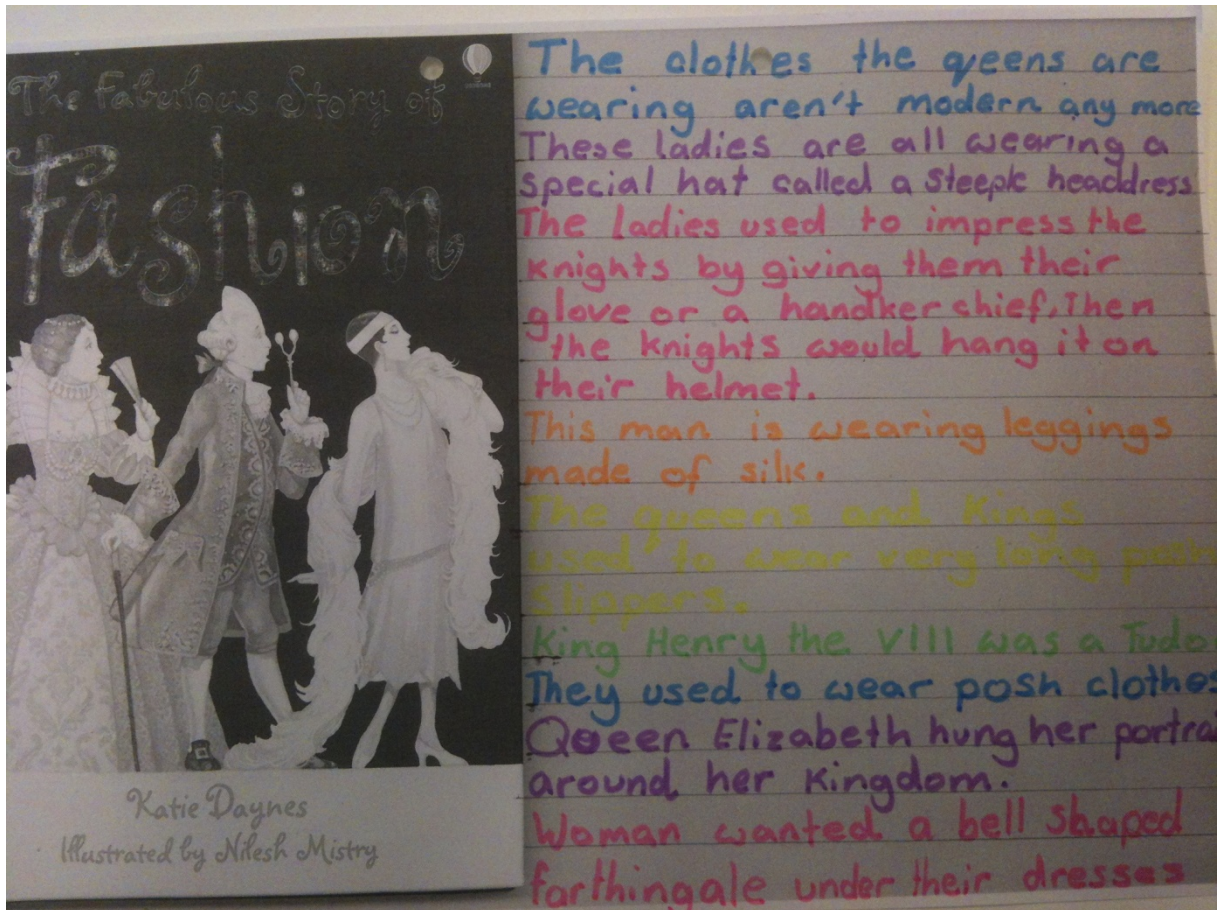 The Fabulous Story of
Fashion
Katie Daynes
Illustrated by Nilesh Mistry
The clothes the qeens are
wearing aren't modern any more
These ladies are all wearing a
special hat called a steeple headdress
The ladies used to impress the
knights by giving them their
glove or a handker chief, Then
the knights would hang it on
their helmet.
This man is wearing leggings
made of silk.
The queens and Kings
used to wear very long posh
slippers.
King Henry the VIII was a Tudo
They used to wear posh clothes
Queen Elizabeth hung her portrai
around her kingdom.
Woman wanted a bell shaped
farthingale under their dresses